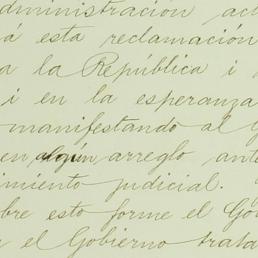 dministración ac
á esta reclamación
a la República i
i en la esperanza
manifestando al G
en algún arreglo ant
imiento judicial.
bre esto forme el Go
el Gobierno trata